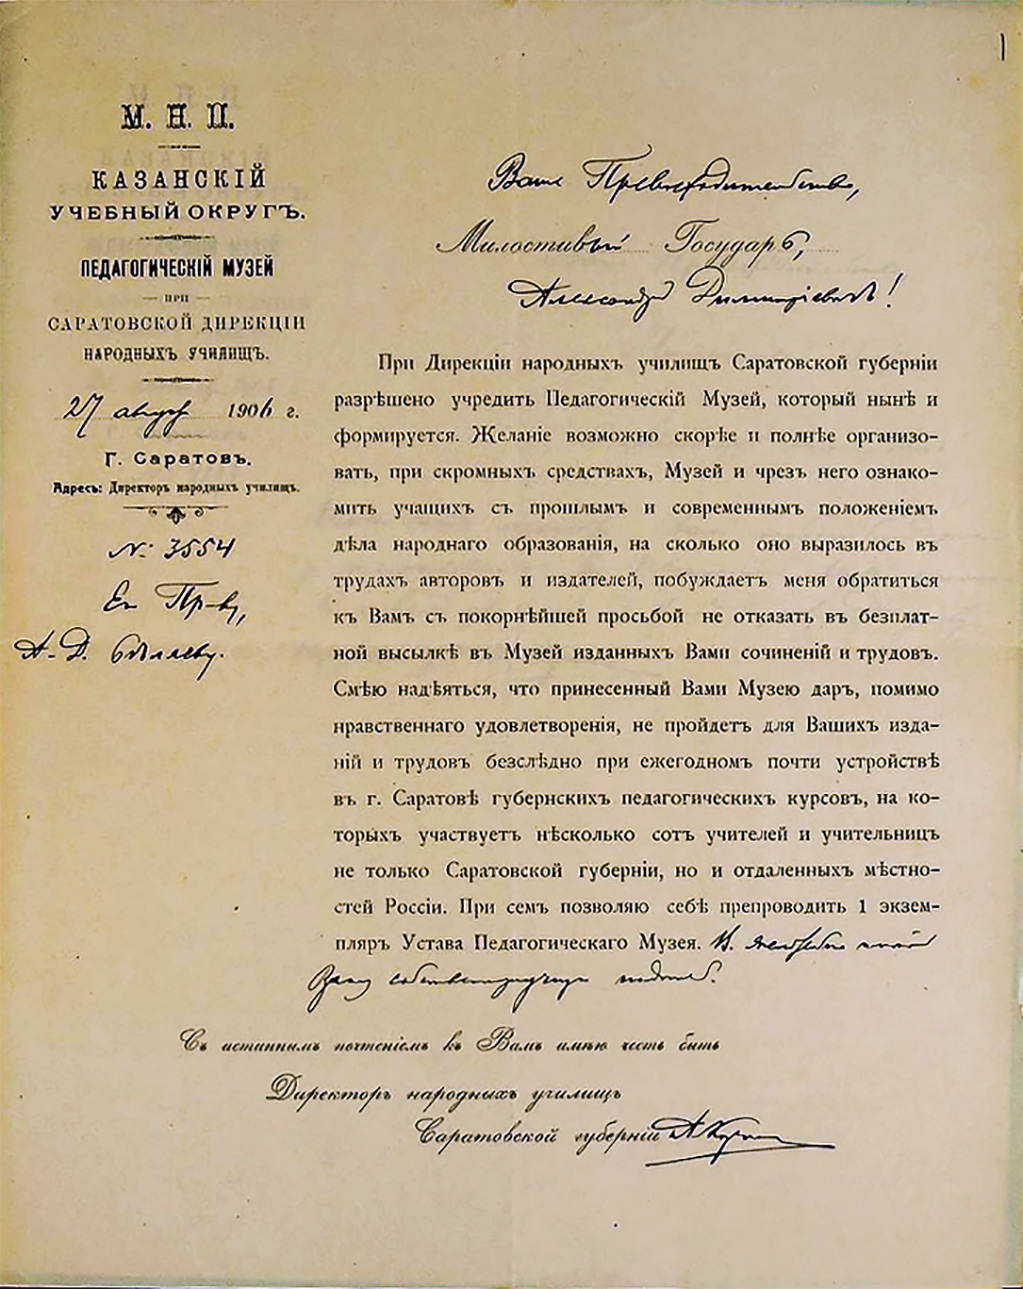 М. Н. П.
КАЗАНСКІЙ
УЧЕБНЫЙ ОКРУГЪ.
ПЕДАГОГИЧЕСКІЙ МУЗЕЙ
— ПРИ —
САРАТОВСКОЙ ДИРЕКЦІИ
НАРОДНЫХЪ УЧИЛИЩЪ.
27 август 1906 г.
Г. Саратовъ.
Адресъ: Директоръ народныхъ училищъ.
№: 3554
Ег Пр-ву,
А. Д. Бѣляеву.
1
Ваше Превосходительство,
Милостивый Государь,
Александръ Димитріевичъ!
При Дирекціи народныхъ училищъ Саратовской губерніи
разрѣшено учредить Педагогическій Музей, который нынѣ и
формируется. Желаніе возможно скорѣе и полнѣе организо-
вать, при скромныхъ средствахъ, Музей и чрезъ него ознако-
мить учащихъ съ прошлымъ и современнымъ положеніемъ
дѣла народнаго образованія, на сколько оно выразилось въ
трудахъ авторовъ и издателей, побуждаетъ меня обратиться
къ Вамъ съ покорнѣйшей просьбой не отказать въ безплат-
ной высылкѣ въ Музей изданныхъ Вами сочиненій и трудовъ.
Смѣю надѣяться, что принесенный Вами Музею даръ, помимо
нравственнаго удовлетворенія, не пройдетъ для Вашихъ изда-
ній и трудовъ безслѣдно при ежегодномъ почти устройствѣ
въ г. Саратовѣ губернскихъ педагогическихъ курсовъ, на ко-
торыхъ участвуетъ нѣсколько сотъ учителей и учительницъ
не только Саратовской губерніи, но и отдаленныхъ мѣстно-
стей Россіи. При семъ позволяю себѣ препроводить 1 экзем-
пляръ Устава Педагогическаго Музея. И
Съ истиннымъ почтеніемъ къ Вамъ имѣю честь быть
Директоръ народныхъ училищъ
Саратовской губерніи